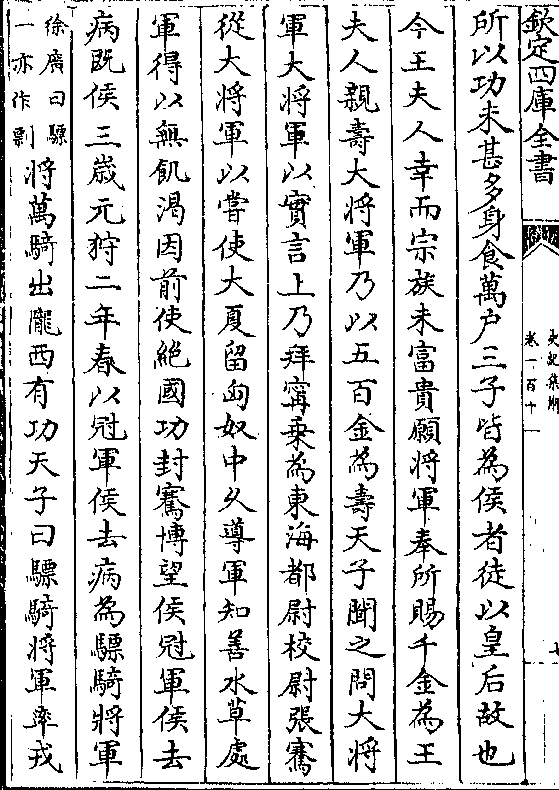 欽定四庫全書
史記集解
卷一百十一
七
所以功未甚多身食萬户三子皆為侯者徒以皇后故也
今王夫人幸而宗族未富貴願將軍奉所賜千金為王
夫人親壽大將軍乃以五百金為壽天子聞之問大將
軍大將軍以實言上乃拜寗乗為東海都尉校尉張騫
從大將軍以嘗使大夏留匈奴中乆導軍知善水草處
軍得以無飢渴因前使絶國功封騫博望侯冠軍侯去
病既侯三歲元狩二年春以冠軍侯去病為驃騎將軍
徐廣曰驃
一亦作剽
將萬騎出隴西有功天子曰驃騎將軍率戎